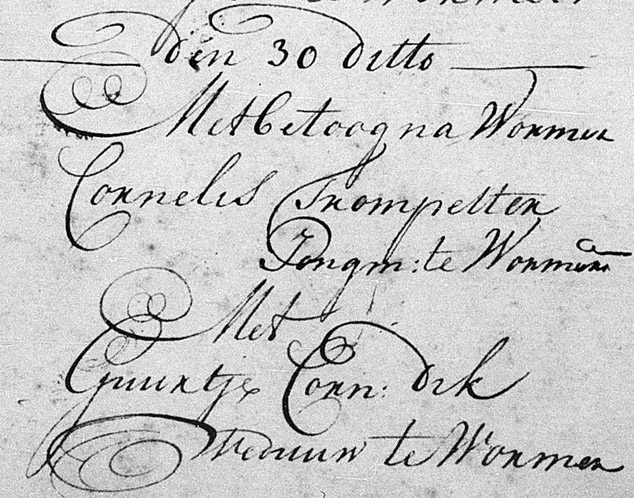 den 30 ditto
Met betoog na Wormer
Cornelis Trompetter
Jongm: te Wormer
Met
Guurtje Corn: dik
Weduw te Wormer